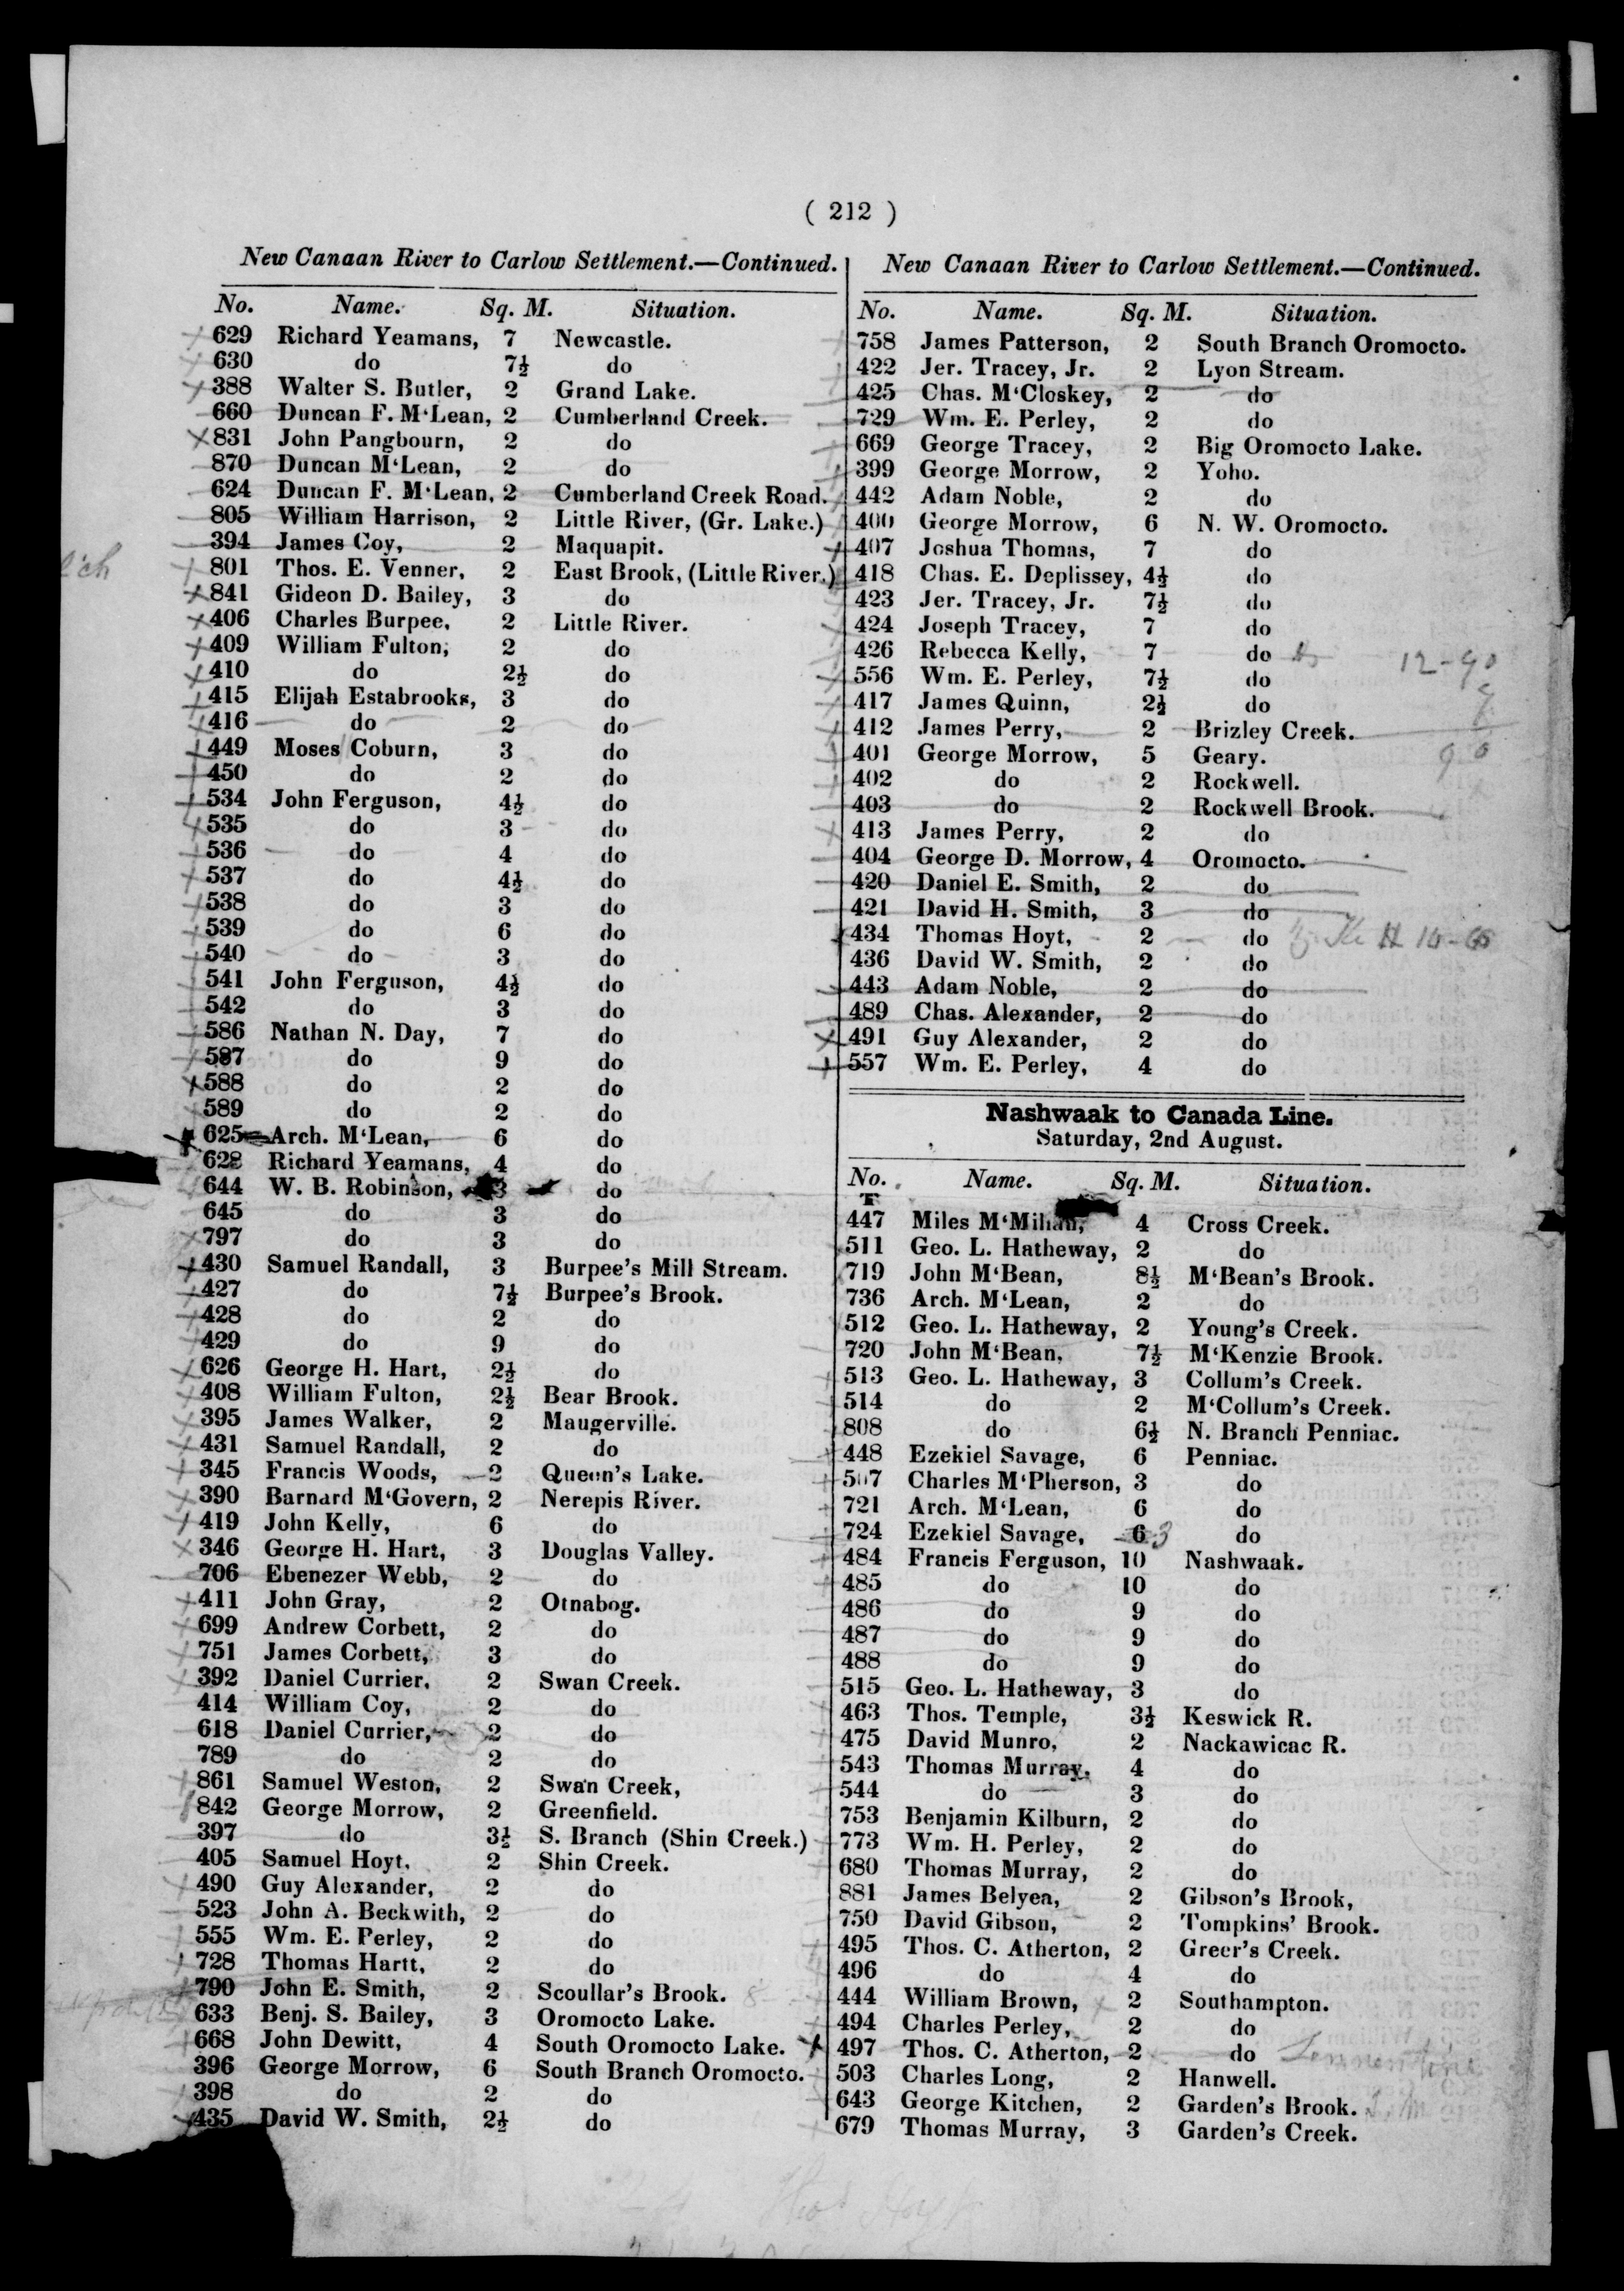 ( 212 )
New Canaan River to Carlow Settlement.—Continued.
No. Name. Sq. M. Situation.
629 Richard Yeamans, 7 Newcastle.
630 do 7½ do
388 Walter S. Butler, 2 Grand Lake.
660 Duncan F. M‘Lean, 2 Cumberland Creek.
831 John Pangbourn, 2 do
870 Duncan M‘Lean, 2 do
624 Duncan F. M‘Lean, 2 Cumberland Creek Road.
805 William Harrison, 2 Little River, (Gr. Lake.)
394 James Coy, 2 Maquapit.
801 Thos. E. Venner, 2 East Brook, (Little River.)
841 Gideon D. Bailey, 3 do
406 Charles Burpee, 2 Little River.
409 William Fulton, 2 do
410 do 2½ do
415 Elijah Estabrooks, 3 do
416 do 2 do
449 Moses Coburn, 3 do
450 do 2 do
534 John Ferguson, 4½ do
535 do 3 do
536 do 4 do
537 do 4½ do
538 do 3 do
539 do 6 do
540 do 3 do
541 John Ferguson, 4½ do
542 do 3 do
586 Nathan N. Day, 7 do
587 do 9 do
588 do 2 do
589 do 2 do
625 Arch. M‘Lean, 6 do
628 Richard Yeamans, 4 do
644 W. B. Robinson, 3 do
645 do 3 do
797 do 3 do
430 Samuel Randall, 3 Burpee's Mill Stream.
427 do 7½ Burpee's Brook.
428 do 2 do
429 do 9 do
626 George H. Hart, 2½ do
408 William Fulton, 2½ Bear Brook.
395 James Walker, 2 Maugerville.
431 Samuel Randall, 2 do
345 Francis Woods, 2 Queen's Lake.
390 Barnard M‘Govern, 2 Nerepis River.
419 John Kelly, 6 do
346 George H. Hart, 3 Douglas Valley.
706 Ebenezer Webb, 2 do
411 John Gray, 2 Otnabog.
699 Andrew Corbett, 2 do
751 James Corbett, 3 do
392 Daniel Currier, 2 Swan Creek.
414 William Coy, 2 do
618 Daniel Currier, 2 do
789 do 2 do
861 Samuel Weston, 2 Swan Creek,
842 George Morrow, 2 Greenfield.
397 do 3½ S. Branch (Shin Creek.)
405 Samuel Hoyt, 2 Shin Creek.
490 Guy Alexander, 2 do
523 John A. Beckwith, 2 do
555 Wm. E. Perley, 2 do
728 Thomas Hartt, 2 do
790 John E. Smith, 2 Scoullar's Brook.
633 Benj. S. Bailey, 3 Oromocto Lake.
668 John Dewitt, 4 South Oromocto Lake.
396 George Morrow, 6 South Branch Oromocto.
398 do 2 do
435 David W. Smith, 2½ do
New Canaan River to Carlow Settlement.—Continued.
No. Name. Sq. M. Situation.
758 James Patterson, 2 South Branch Oromocto.
422 Jer. Tracey, Jr. 2 Lyon Stream.
425 Chas. M‘Closkey, 2 do
729 Wm. E. Perley, 2 do
669 George Tracey, 2 Big Oromocto Lake.
399 George Morrow, 2 Yoho.
442 Adam Noble, 2 do
400 George Morrow, 6 N. W. Oromocto.
407 Joshua Thomas, 7 do
418 Chas. E. Deplissey, 4½ do
423 Jer. Tracey, Jr. 7½ do
424 Joseph Tracey, 7 do
426 Rebecca Kelly, 7 do 12-90
556 Wm. E. Perley, 7½ do
417 James Quinn, 2½ do
412 James Perry, 2 Brizley Creek.
401 George Morrow, 5 Geary.
402 do 2 Rockwell.
403 do 2 Rockwell Brook.
413 James Perry, 2 do
404 George D. Morrow, 4 Oromocto.
420 Daniel E. Smith, 2 do
421 David H. Smith, 3 do
434 Thomas Hoyt, 2 do
436 David W. Smith, 2 do
443 Adam Noble, 2 do
489 Chas. Alexander, 2 do
491 Guy Alexander, 2 do
557 Wm. E. Perley, 4 do
Nashwaak to Canada Line.
Saturday, 2nd August.
No. Name. Sq. M. Situation.
447 Miles 4 Cross Creek.
511 Geo. L. Hatheway, 2 do
719 John M‘Bean, 8½ M‘Bean's Brook.
736 Arch. M‘Lean, 2 do
512 Geo. L. Hatheway, 2 Young's Creek.
720 John M‘Bean, 7½ M‘Kenzie Brook.
513 Geo. L. Hatheway, 3 Collum's Creek.
514 do 2 M‘Collum's Creek.
808 do 6½ N. Branch Penniac.
448 Ezekiel Savage, 6 Penniac.
507 Charles M‘Pherson, 3 do
721 Arch. M‘Lean, 6 do
724 Ezekiel Savage, 6 3 do
484 Francis Ferguson, 10 Nashwaak.
485 do 10 do
486 do 9 do
487 do 9 do
488 do 9 do
515 Geo. L. Hatheway, 3 do
463 Thos. Temple, 3½ Keswick R.
475 David Munro, 2 Nackawicac R.
543 Thomas Murray, 4 do
544 do 3 do
753 Benjamin Kilburn, 2 do
773 Wm. H. Perley, 2 do
680 Thomas Murray, 2 do
881 James Belyea, 2 Gibson's Brook,
750 David Gibson, 2 Tompkins' Brook.
495 Thos. C. Atherton, 2 Greer's Creek.
496 do 4 do
444 William Brown, 2 Southampton.
494 Charles Perley, 2 do
497 Thos. C. Atherton, 2 do
503 Charles Long, 2 Hanwell.
643 George Kitchen, 2 Garden's Brook.
679 Thomas Murray, 3 Garden's Creek.